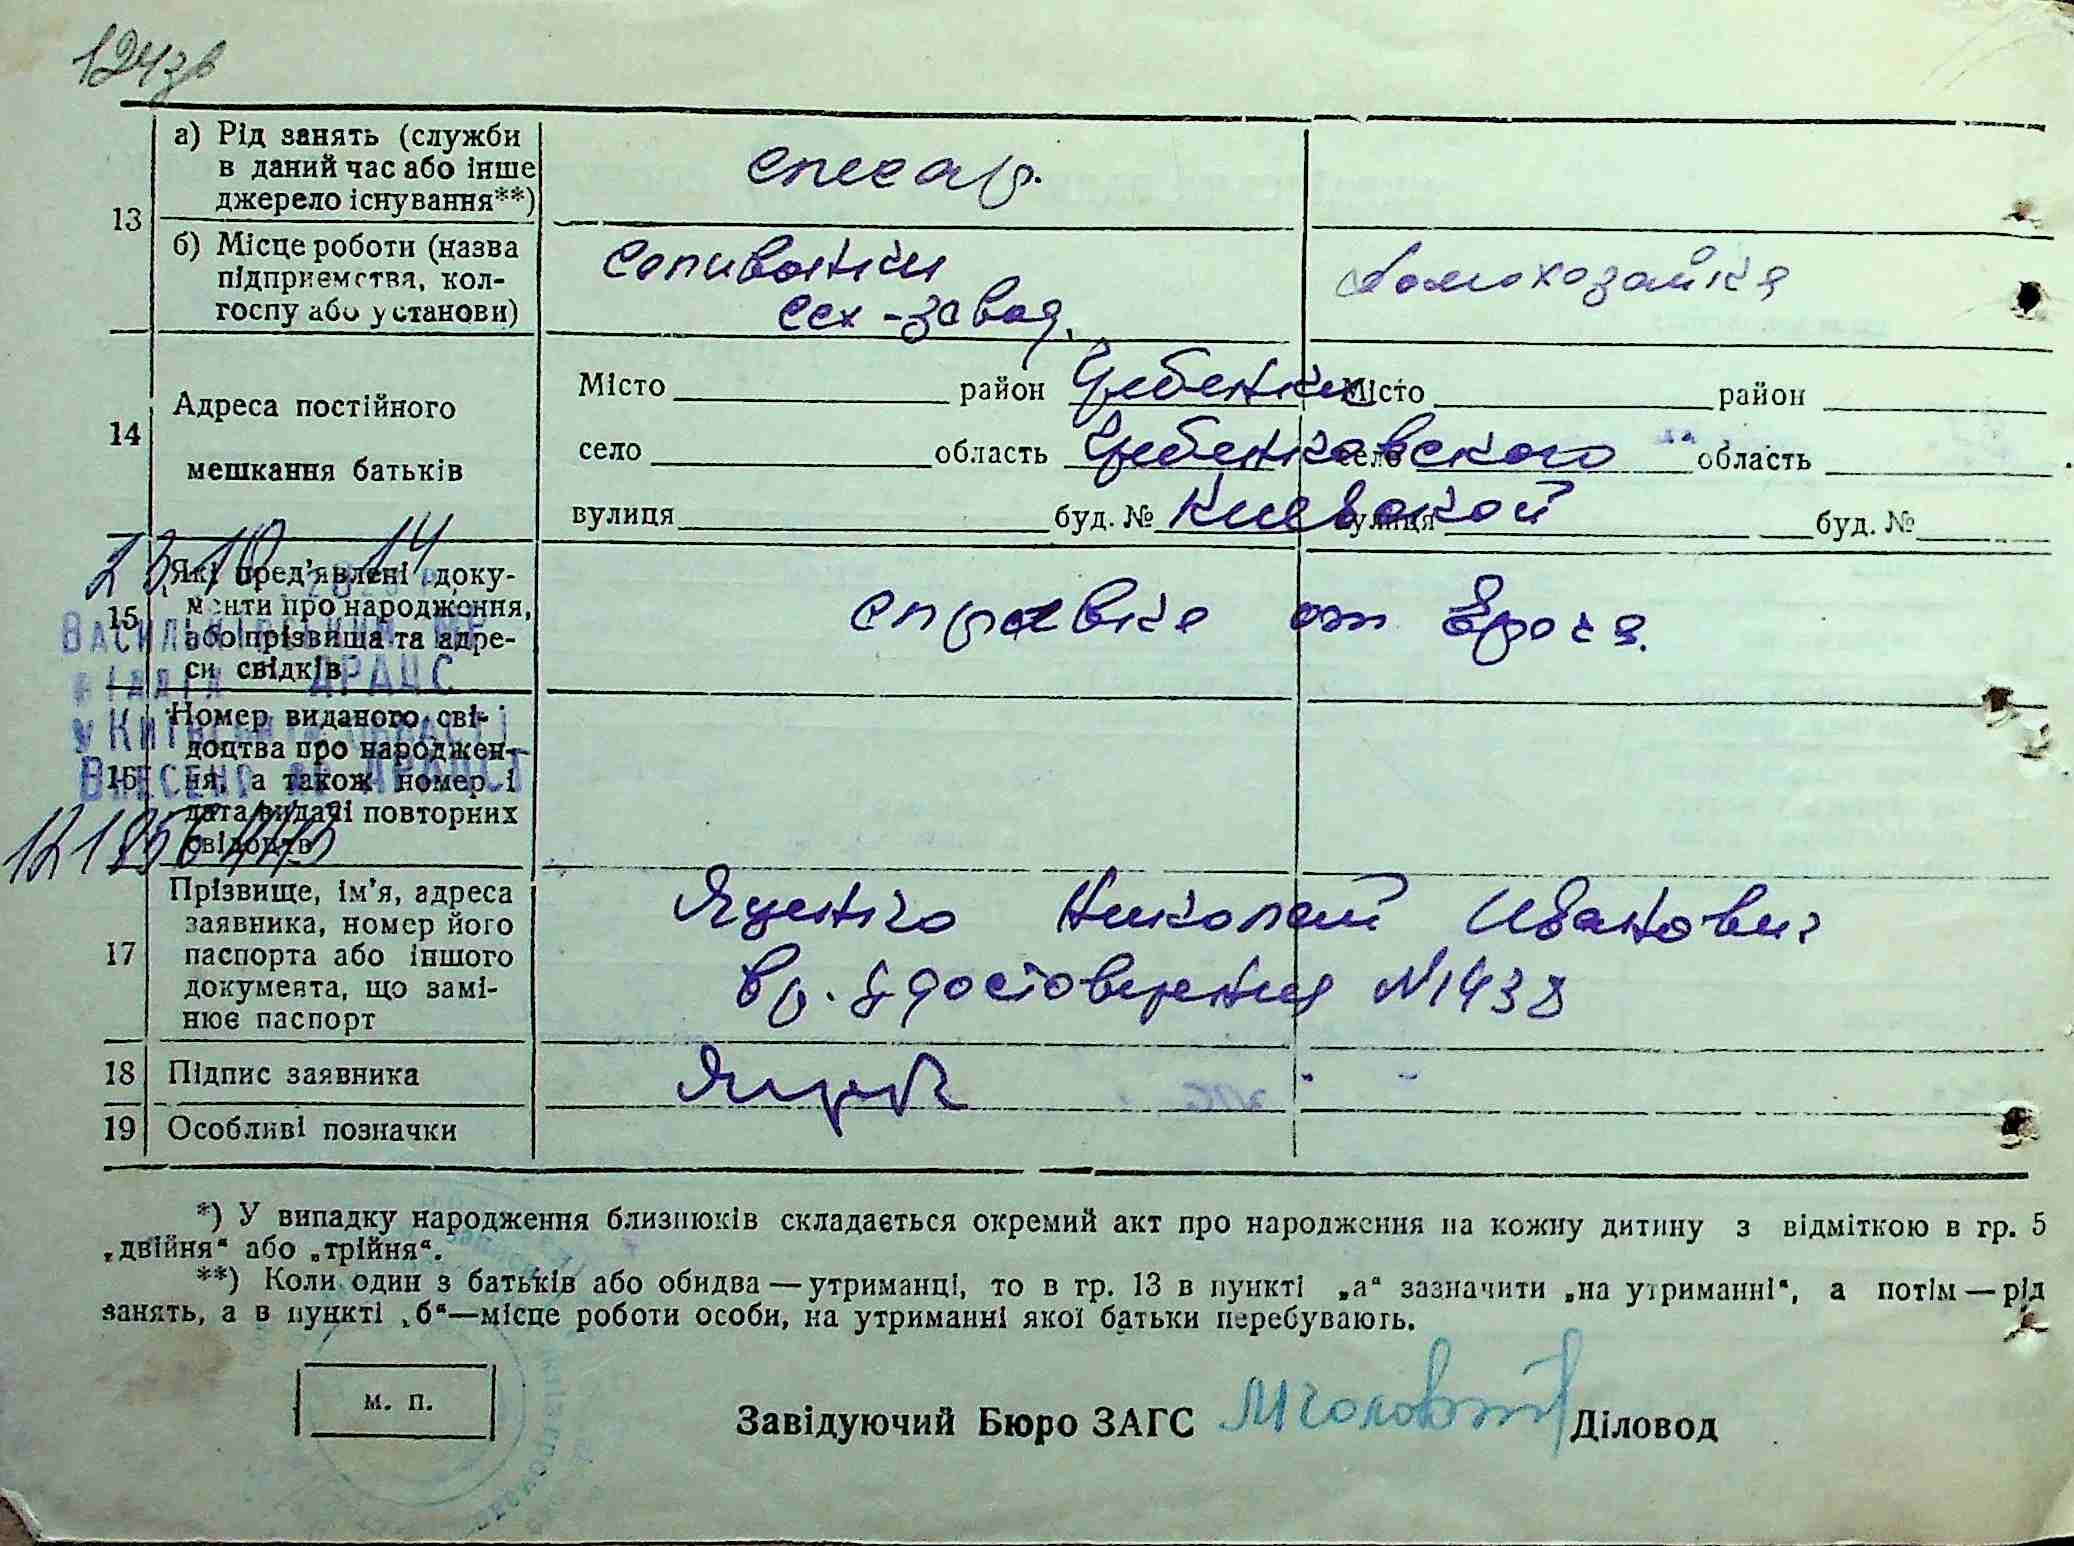 124зв
13
а) Рід занять (служби
в даний час або інше
джерело існування**)
слесар.
б) Місце роботи (назва
підприємства, кол-
госпу або установи)
Саливонки
сах-завод,
домохозайка
14
Адреса постійного
мешкання батьків
Місто район Гребенки
село область Гребенковского
вулиця буд. № Киевской
Місто район
село область
вулиця буд. №
15
Які пред'явлені доку-
менти про народження,
або прізвища та адре-
си свідків
справка от врача.
23 10 14
ВАСИЛЬКІВСЬКИМ МР
ВІДДІЛ ДРАЦС
У КИЇВСЬКІЙ ОБЛАСТІ
ВНЕСЕНО ДО ДРАЦСГ
16
Номер виданого сві-
доцтва про народжен-
ня, а також номер і
дата видачі повторних
свідоцтв
17
Прізвище, ім'я, адреса
заявника, номер його
паспорта або іншого
документа, що замі-
нює паспорт
Яценко Николай Иванович
Вр. удостоверения №1438
18
Підпис заявника
19
Особливі позначки
*) У випадку народження близнюків складається окремий акт про народження на кожну дитину з відміткою в гр. 5
„двійня“ або „трійня“.
**) Коли один з батьків або обидва — утриманці, то в гр. 13 в пункті „а“ зазначити „на утриманні“, а потім — рід
занять, а в пункті „б“—місце роботи особи, на утриманні якої батьки перебувають.
м. п.
Завідуючий Бюро ЗАГС
Діловод